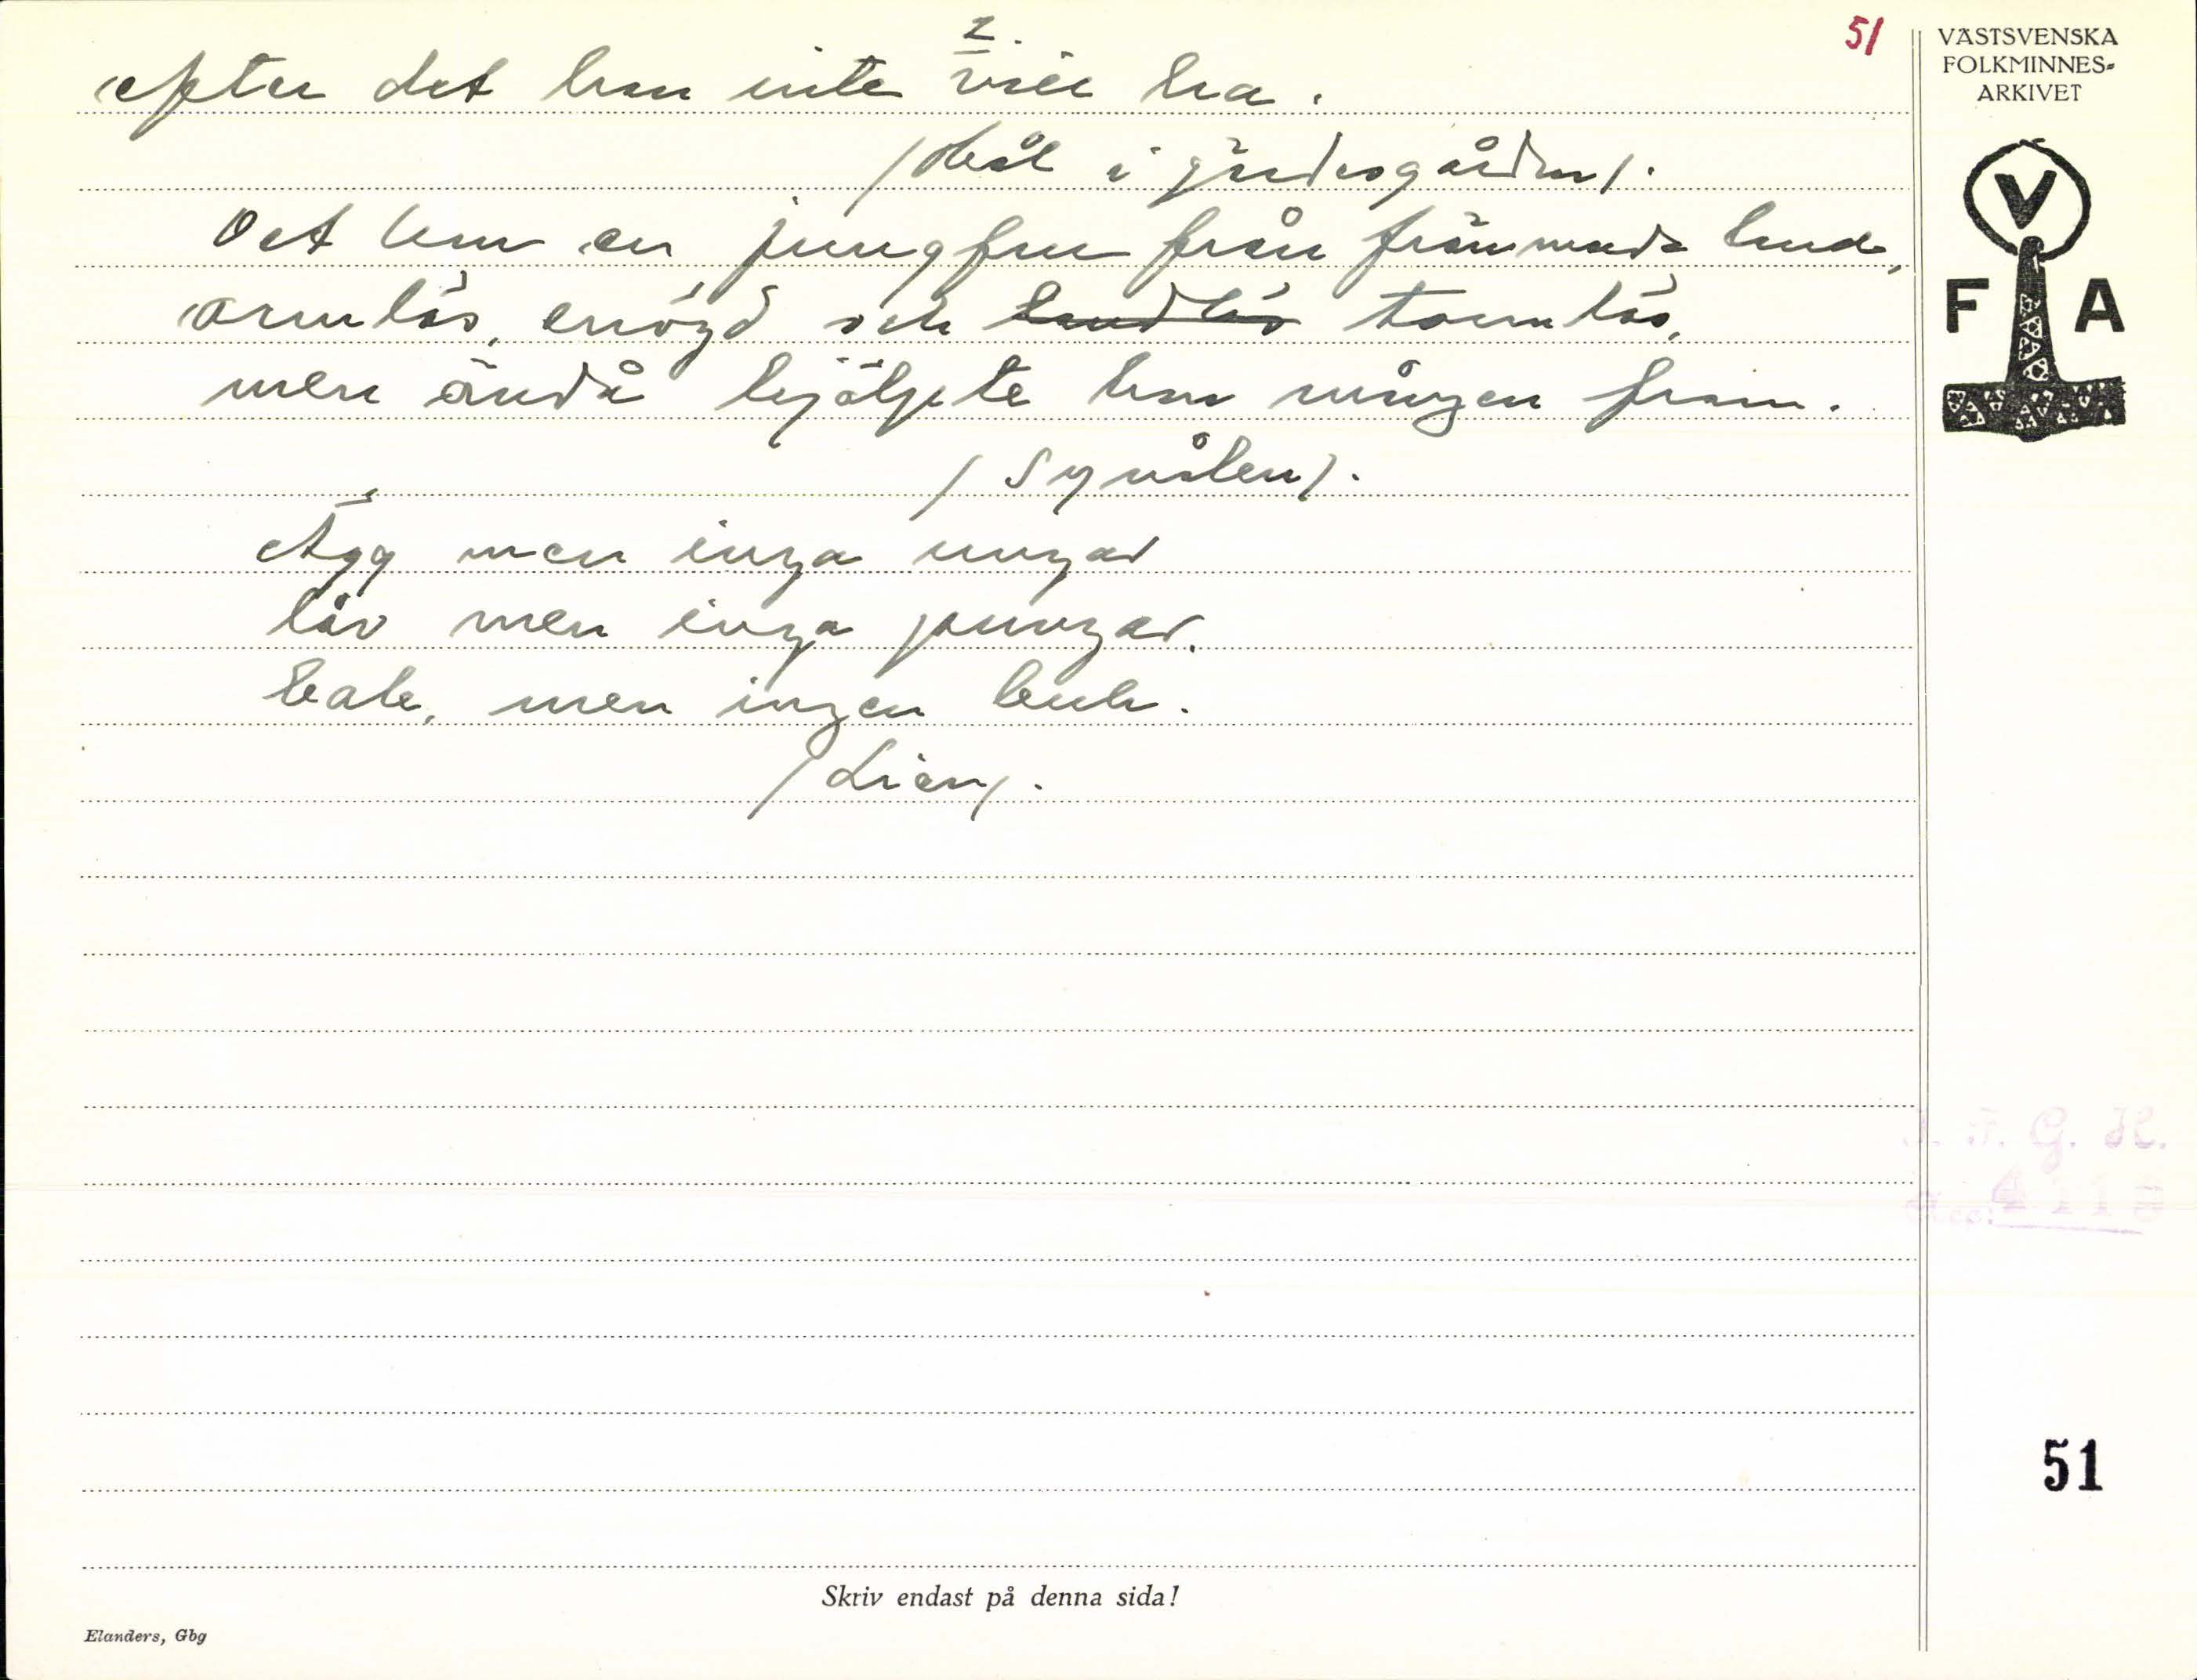 2.
51
efter det han inte vill ha.
/Hål i gärdesgården/.
Det kom en jungfru från främmande land,
armlös, enögd och landlös tarmlös,
men ändå hjälpte hon mången fram.
/Synålen/.
Ägg men inga ungar
lår men inga pungar.
bak, men ingen buk.
/Lien/.
VÄSTSVENSKA
FOLKMINNES-
ARKIVET
V
F A
I. F. G. H.
Acc: 4118
51
Skriv endast på denna sida!
Elanders, Gbg